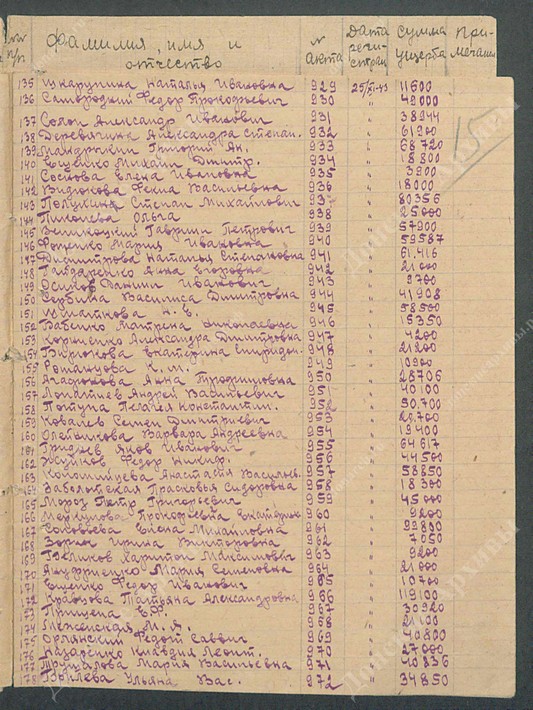 №№ п/п Фамилия, имя и отчество № акта Дата реги-страции Сумма ущерба При-мечание
135 Шкарупина Наталья Ивановна 929 25/XI-43 11500
136 Самородский Федор Прокофьевич 930 " 49000
137 Александр Иванович 931 " 38944
138 Деревягина Александра Степан. 932 " 61900
139 Мандрыкин Григорий Ан. 933 " 68720
140 Ещенко Михаил Дмитр. 934 " 18800
141 Соснова Елена Ивановна 935 " 3900
142 Фекла Васильевна 936 " 18000
143 Полукина Степан Михайлович 937 " 80356
144 Ольга 938 " 25000
145 Гавриил Петрович 939 " 57900
146 Мария Ивановна 940 " 59587
147 Димитрова Наталья Степановна 941 " 61.416
148 Гайдаренко Анна Егоровна 942 " 21000
149 Осипов Даниил Иванович 943 " 9700
150 Сербина Василиса Дмитровна 944 " 41908
151 Н. Е. 945 " 58500
152 Бабенко Матрена Николаевна 946 " 15350
153 Корниенко Александра Дмитровна 947 " 4200
154 Бирюкова Екатерина Спиридон. 948 " 21200
155 Романцова К. И. 949 " 10900
156 Агаркова Анна Трофимовна 950 " 28706
157 Лопатиев Андрей Васильевич 951 " 40100
158 Константин. 952 " 50.700
159 Ковалев Семен Дмитриевич 953 " 28.700
160 Варвара Андреевна 954 " 19400
161 Гриднев Яков Иванович 955 " 64617
162 Федор Никир. 956 " 44500
163 Коломийцева Анастасия Васильев. 957 " 58850
164 Заболотская Прасковья Сидоровна 958 " 18300
165 Мороз Петр Григорьевич 959 " 45000
166 Меркулова Прокофьевна 960 " 9200
167 Соловьева Елена Михайловна 961 " 99800
168 Ирина Викторовна 962 " 7050
169 Беликов Харитон Максимович 963 " 9200
170 Мария Семеновна 964 " 21000
171 Ещенко Федор Иванович 965 " 10700
172 Кравцова Татьяна Александровна 966 " 119100
173 Прищепа Е. Ф. 967 " 30920
174 М. Я. 968 " 21100
175 Орлянский Федот Саввич 969 " 40800
176 Назаренко Клавдия Леонт. 970 " 27000
177 Трушалова Мария Васильевна 971 " 40836
178 Ульяна Вас. 972 " 34850